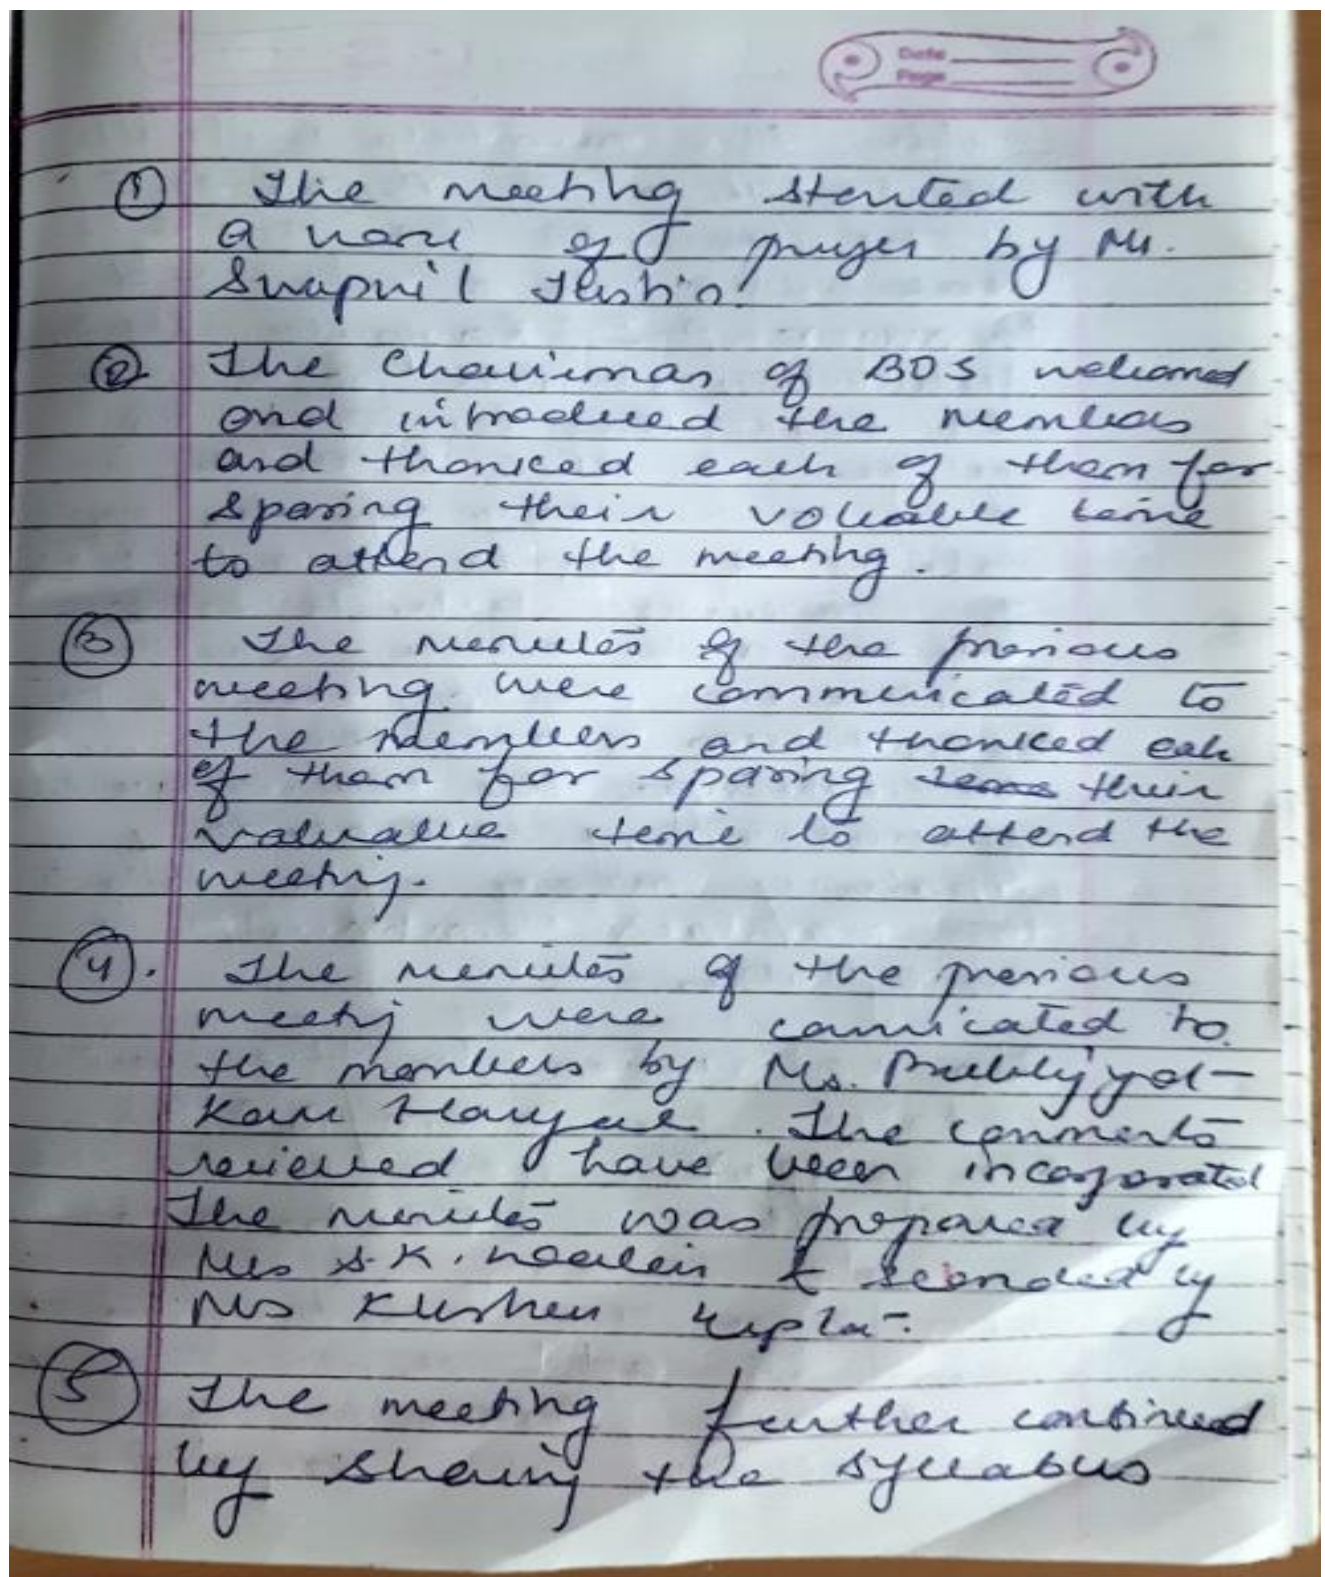 Date
Page
① The meeting started with
a word of prayer by Mr.
Swapnil
② The Chairman of BOS welcomed
and introduced the members
and thanked each of them for
sparing their valuable time
to attend the meeting.
③ The minutes of the previous
meeting were communicated to
the members and thanked each
of them for sparing their
valuable time to attend the
meeting.
④. The minutes of the previous
meeting were comnicated to
the members by Ms.
Kaur. The comments
reviewed have been incorporated
The minutes was prepared by
Mrs S.K. & seconded by
Ms
⑤ The meeting further continued
by sharing the syllabus